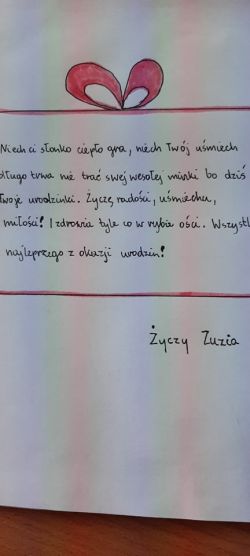 Niech ci słonko ciepło gra, niech Twój uśmiech
długo trwa nie trać swej wesołej minki bo dziś
Twoje urodzinki. Życzę radości, uśmiechu,
miłości! I zdrowia tyle co w rybie ości. Wszystk
najlepszego z okazji urodzin!
Życzy Zuzia